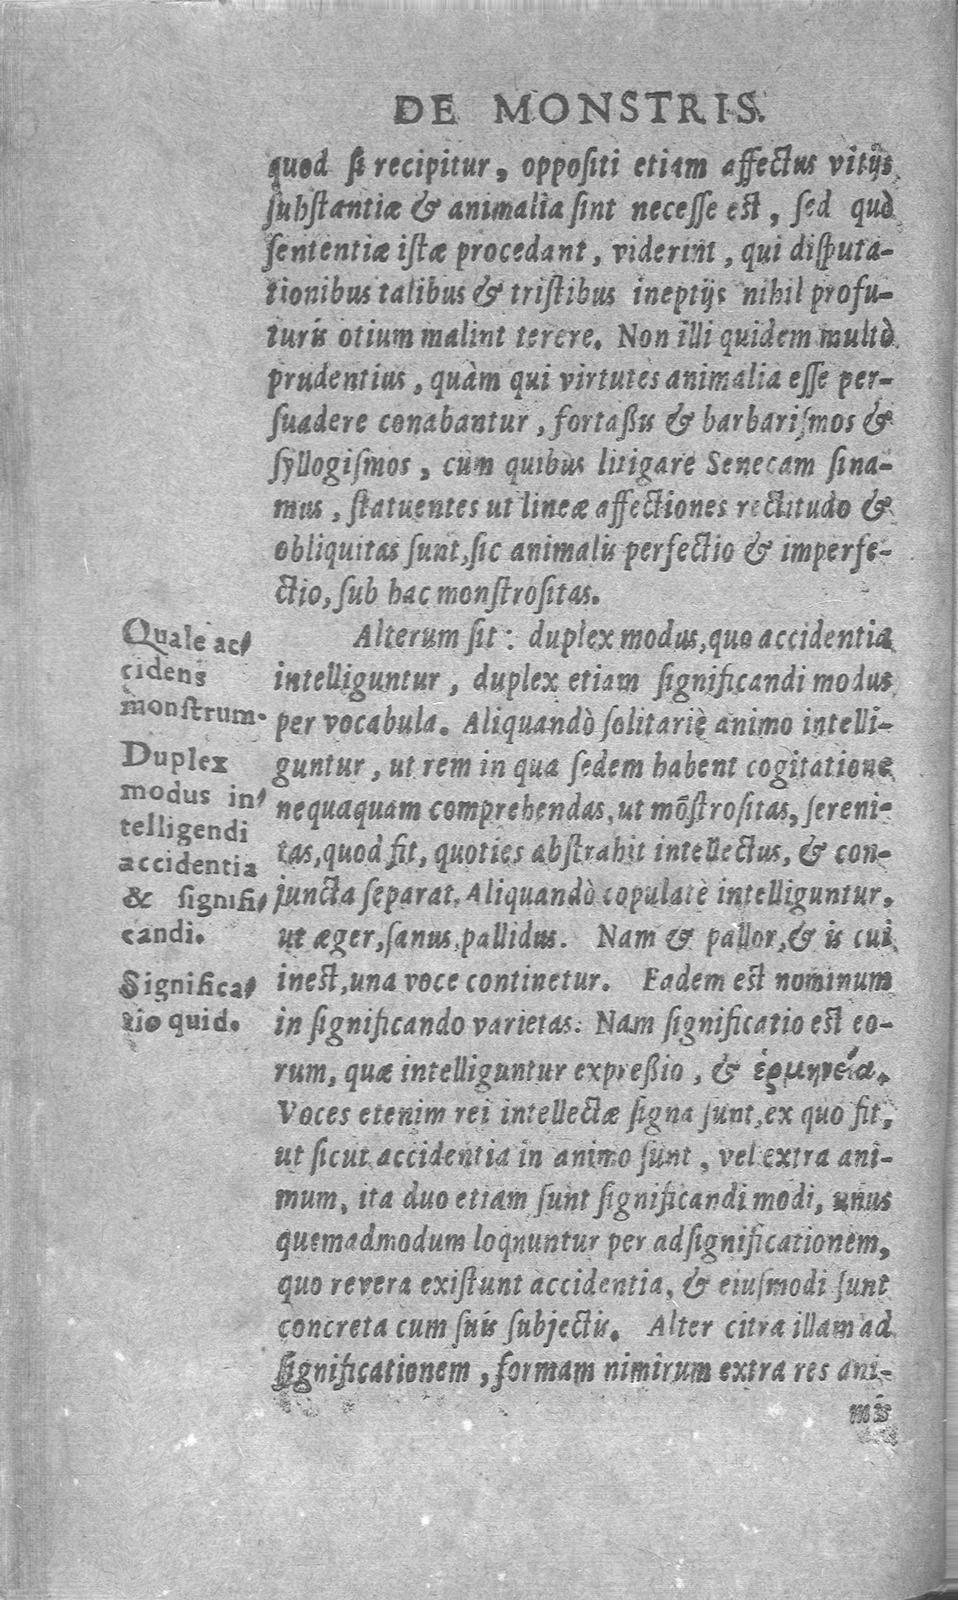 DE MONSTRIS.
quod si recipitur, oppositi etiam affectus vitijs
substantiæ & animalia sint necesse est, sed quò
sententiæ istæ procedant, viderint, qui disputa-
tionibus talibus & tristibus ineptijs nihil profu-
turis otium malint terere. Non illi quidem multò
prudentius, quàm qui virtutes animalia esse per-
suadere conabantur, fortaßis & barbarismos &
syllogismos, cum quibus litigare Senecam sina-
mus, statuentes ut lineæ affectiones rectitudo &
obliquitas sunt, sic animalis perfectio & imperfe-
ctio, sub hac monstrositas.
Quale ac-
cidens
monstrum.
Duplex
modus in-
telligendi
accidentia
& signifi-
candi.
Significa-
tio quid.
Alterum sit: duplex modus, quo accidentia
intelliguntur, duplex etiam significandi modus
per vocabula. Aliquandò solitariè animo intelli-
guntur, ut rem in qua sedem habent cogitatione
nequaquam comprehendas, ut mõstrositas, sereni-
tas, quod fit, quoties abstrahit intellectus, & con-
juncta separat. Aliquandò copulatè intelliguntur,
ut æger, sanus, pallidus. Nam & pallor, & is cui
inest, una voce continetur. Eadem est nominum
in significando varietas: Nam significatio est eo-
rum, quæ intelliguntur expreßio, & ἑρμηνεία.
Voces etenim rei intellectæ signa sunt, ex quo fit,
ut sicut accidentia in animo sunt, vel extra ani-
mum, ita duo etiam sunt significandi modi, unus
quemadmodum loqnuntur per adsignificationem,
quo revera existunt accidentia, & eiusmodi sunt
concreta cum suis subjectis. Alter citra illam ad
significationem, formam nimirum extra res ani-
mis